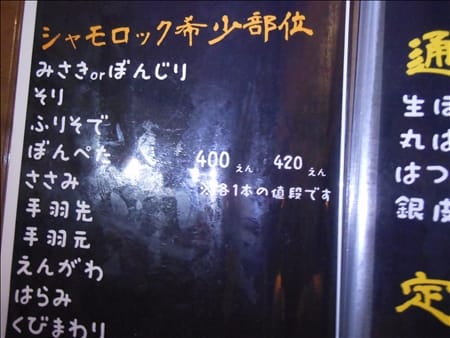 シャモロック希少部位
みさきorぼんじり
そり
ふりそで
ぼんぺた 400えん 420えん
ささみ ※各1本の値段です
手羽先
手羽元
えんがわ
はらみ
くびまわり
通
生ぼ
丸は
はつ
銀皮
定